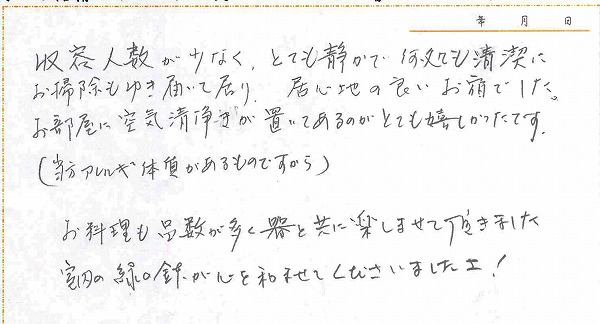 年 月 日
収容人数が少なく、とても静かで何処も清潔に
お掃除もゆき届いて居り、居心地の良いお宿でした。
お部屋に空気清浄きが置いてあるのがとても嬉しかったです。
(当方アレルギ体質があるものですから)
お料理も品数が多く器と共に楽しませて頂きました
室内の緑の鉢が心を和ませてくださいましたヨ!